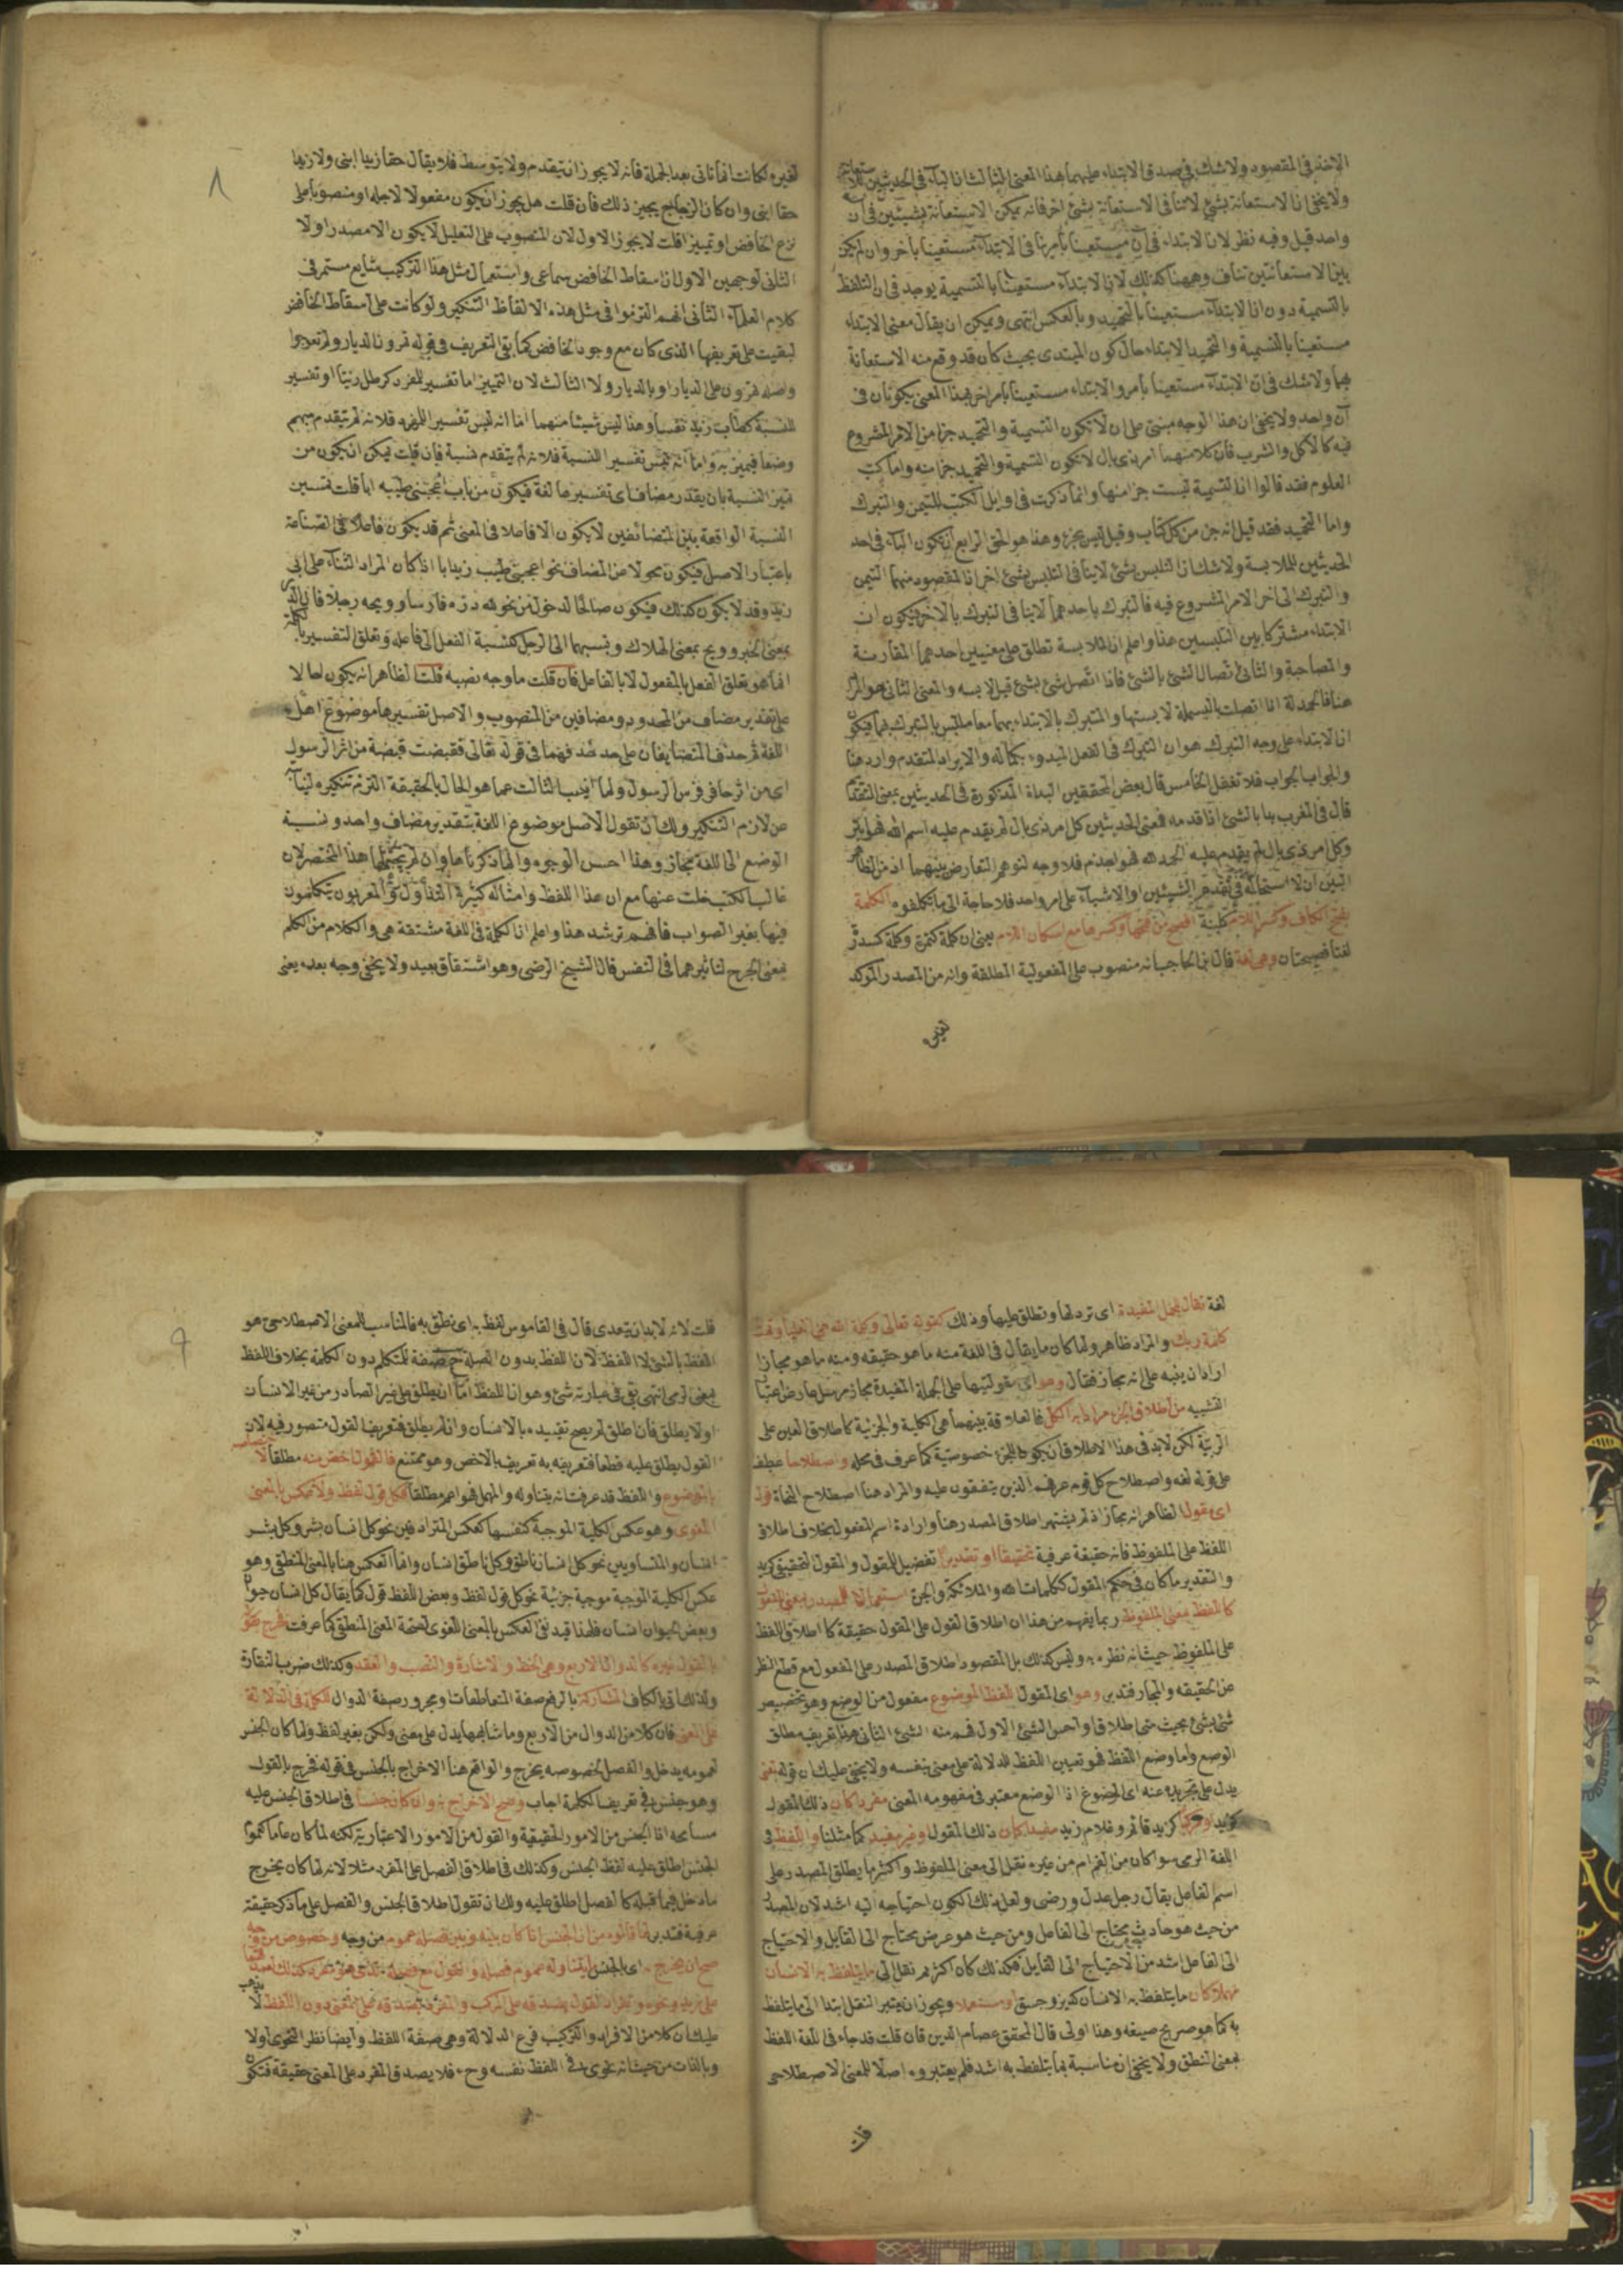 الاخذ فى المقصود ولا شك فى صدق الابتداء عليهما هذا المعنى الثالث ان الباء فى الحديثين للاستعانة
ولا يخفى ان الاستعانة بشئ لا تنافى الاستعانة بشئ اخر فانه يمكن الاستعانة بشيئين فى آن
واحد قيل وفيه نظر لان الابتداء فى آن مستعينا بأمر ينافى الابتداء مستعينا بآخر وان لم يكن
بين الاستعانتين تناف وههنا كذلك لان الابتداء مستعينا بالتسمية يوجد فى ان التلفظ
بالتسمية دون ان الابتداء مستعينا بالتحميد وبالعكس انتهى ويمكن ان يقال معنى الابتداء
مستعينا بالتسمية والتحميد الابتداء حال كون المبتدى بحيث كان قد وقع منه الاستعانة
بهما ولا شك فى ان الابتداء مستعينا بأمر والابتداء مستعينا بأمر اخر بهذا المعنى يكونان فى
آن واحد ولا يخفى ان هذا الوجه مبنى على ان لا تكون التسمية والتحميد جزأ من الامر المشروع
فيه كالاكل والشرب فان كلا منهما امر ذى بال لا تكون التسمية والتحميد جزأ منه واما كتب
العلوم فقد قالوا ان التسمية ليست جزأ منها وانما ذكرت فى اوايل الكتب للتيمن والتبرك
واما التحميد فقد قيل انه جزء من كل كتاب وقيل ليس بجزء وهذا هو الحق الرابع ان تكون الباء فى احد
الحديثين للملابسة ولا شك ان التلبس بشئ لا ينافى التلبس بشئ اخر اذ المقصود منهما التيمن
والتبرك الى اخر الامر المشروع فيه فالتبرك باحدهما لا ينافى التبرك بالاخر فيكون ان
الابتداء مشتركا بين التلبسين هذا واعلم ان الملابسة تطلق على معنيين احدهما المقارنة
والمصاحبة والثانى تصال الشئ بالشئ فاذا اتصل شئ بشئ قيل لابسه والمعنى الثانى هو المراد
هنا فالحمدلة اذا اتصلت بالبسملة لابستها والمتبرك بالابتداء بهما معا متلبس بالتبرك بهما فيكون
ان الابتداء على وجه التبرك هو ان التبرك فى الفعل المبدوء بكماله والايراد المتقدم وارد هنا
والجواب الجواب فلا تغفل الخامس قال بعض المحققين البداءة المذكورة فى الحديثين بمعنى التقديم
قال فى المغرب بدا بالشئ اذا قدمه فمعنى الحديثين كل امر ذى بال لم يقدم عليه اسم الله فهو ابتر
وكل امر ذى بال لم يقدم عليه الحمد لله فهو اجذم فلا وجه لتوهم التعارض بينهما اذ من الظاهر
البين ان لا استحالة فى تقدم الشيئين او الاشياء على امر واحد فلا حاجة الى ما تكلفوه الكلمة
بفتح الكاف وكسر اللام كلبنة افصح من فتحها وكسرها مع اسكان اللام يعنى ان كلمة كتمرة وكلمة كسدرة
لغتا فصيحتان وهى لغة قال ابن الحاجب انه منصوب على المفعولية المطلقة وانه من المصدر المؤكد
لغيره
لغيره لكانت انما تاتى بعد الجملة فانه لا يجوز ان يتقدم ولا يتوسط فلا يقال حقا زيد ابنى ولا زيد
حقا ابنى وان كان الزجاج يجيز ذلك فان قلت هل يجوز ان يكون مفعولا لاجله او منصوبا على
نزع الخافض او تمييز اقلت لا يجوز الاول لان المنصوب على التعليل لا يكون الا مصدرا ولا
الثانى لوجهين الاول ان اسقاط الخافض سماعى واستعمال مثل هذا التركيب شايع مستمر فى
كلام العلماء الثانى انهم التزموا فى مثل هذه الالفاظ التنكير ولو كانت على اسقاط الخافض
لبقيت على تعريفها الذى كان مع وجود الخافض كما بقى التعريف فى قوله تمرون الديار ولم تعوجوا
واصله تمرون على الديار او بالديار ولا الثالث لان التمييز اما تفسير للمفرد كرطل زيتا او تفسير
للنسبة كطاب زيد نفسا وهذا ليس شيئا منهما اما انه ليس تفسير المفرد فلانه لم يتقدم مبهم
وضعا فيميز به واما انه ليس تفسير النسبة فلانه لم يتقدم نسبة فان قلت يمكن ان يكون من
تميز النسبة بان يقدر مضاف اى تفسيرها لغة فيكون من باب اعجبنى طيبه ابا قلت تفسير
النسبة الواقعة بين المتضائفين لا يكون الا فاعلا فى المعنى ثم قد يكون فاعلا فى الصناعة
باعتبار الاصل فيكون محولا عن المضاف نحو اعجبنى طيب زيد ابا اذا كان المراد الثناء على ابى
زيد وقد لا يكون كذلك فيكون صالحا لدخول من نحو لله دره فارسا وويحه رجلا فان الدر
بمعنى الخير وويح بمعنى الهلاك ونسبهما الى الرجل كنسبة الفعل الى فاعله وتعلق التفسير بالكلمة
انما هو تعلق الفعل بالمفعول لا بالفاعل فان قلت ما وجه نصبه قلت الظاهر انه يكون حالا
على تقدير مضاف من المحدود ومضافين من المنصوب والاصل تفسيرها موضوع اهل
اللغة ثم حذف المتضايفان على حد حذفهما فى قوله تعالى فقبضت قبضة من اثر الرسول
اى من اثر حافر فرس الرسول ولما انيب الثالث عما هو الحال بالحقيقة التزم تنكيره لنيابته
عن لازم التنكير ولك ان تقول الاصل موضوع اللغة بتقدير مضاف واحد ونسبة
الوضع الى اللغة مجاز وهذا احسن الوجوه وانما ذكرناها وان لم يحتملها هذا المختصر لان
غالب الكتب خلت عنها مع ان هذا اللفظ وامثاله كثيرة التداول والمعربون يتكلمون
فيها بغير الصواب فافهم ترشد هذا واعلم ان الكلمة فى اللغة مشتقة هى والكلام من الكلم
بمعنى الجرح لتاثيرهما فى النفس قال الشيخ الرضى وهو اشتقاق بعيد ولا يخفى وجه بعده يعنى
لغة تقال للجمل المفيدة اى ترد لها وتطلق عليها وذلك كقوله تعالى وكلمة الله هى العليا وتمت
كلمة ربك والمراد ظاهر ولما كان ما يقال فى اللغة منه ما هو حقيقه ومنه ما هو مجاز
اراد ان ينبه على انه مجاز فقال وهو اى مقوليتها على الجملة المفيدة مجاز مرسل عارض عن
التشبيه من اطلاق الجزء مرادا به الكل فالعلاقة بينهما هى الكلية والجزئية كاطلاق العين على
الربيئة لكن لا بد فى هذا الاطلاق ان يكون للجزء خصوصية كما عرف فى محله واصطلاحا عطف
على قوله لغه واصطلاح كل قوم عرفهم الذين يتفقون عليه والمراد هنا اصطلاح النحاة قول
اى مقول الظاهر انه مجاز اذ لم يشتهر اطلاق المصدر هنا وارادة اسم المفعول بخلاف اطلاق
اللفظ على الملفوظ فانه حقيقة عرفية تحقيقا او تقديرا تفصيل للمقول والمقول التحقيقى كزيد
والتقدير ما كان فى حكم المقول ككلمات الله والملائكة والجن استعمالا للمصدر بمعنى المفعول
كاللفظ بمعنى الملفوظ ربما يفهم من هذا ان اطلاق القول على المقول حقيقة كاطلاق اللفظ
على الملفوظ حيث انه نظره به وليس كذلك بل المقصود اطلاق المصدر على المفعول مع قطع النظر
عن الحقيقه والمجاز فتدبر وهو اى المقول اللفظ الموضوع مفعول من الوضع وهو تخصيص
شئ بشئ بحيث متى اطلاق او احس الشئ الاول فهم منه الشئ الثانى هذا تعريف مطلق
الوضع واما وضع اللفظ فهو تعيين اللفظ للدلالة على معنى بنفسه ولا يخفى عليك ان قوله بمعنى
يدل على تجريده عنه اى الموضوع اذ الوضع معتبر فى مفهومه المعنى مفردا كان ذلك المقول
كزيد او مركبا كزيد قائم وغلام زيد مفيدا كان ذلك المقول او غير مفيد كما مثلنا واللفظ فى
اللغة الرمى سوا كان من الفم ام من غيره نقل الى معنى الملفوظ واكثر ما يطلق المصدر على
اسم الفاعل يقال رجل عدل ورضى ولعل ذلك لكون احتياجه اليه اشد لان المصدر
من حيث هو حادث يحتاج الى الفاعل ومن حيث هو عرض محتاج الى القابل والاحتياج
الى الفاعل اشد من الاحتياج الى القابل فكذلك كان اكثر ثم نقل الى ما يتلفظ به الانسان
مهملا كان ما يتلفظ به الانسان كديز وجسق او مستعملا ويجوز ان يعتبر النقل ابتدا الى ما يتلفظ
به كما هو صريح صيغه وهذا اولى قال المحقق عصام الدين فان قلت قد جاء فى اللغة اللفظ
بمعنى النطق ولا يخفى ان مناسبة بما يتلفظ به اشد فلم يعتبروه اصلا للمعنى الاصطلاحى
قلت
قلت لانه لابد ان يتعدى قال فى القاموس لفظ به اى نطق به فالمناسب للمعنى الاصطلاحى هو
اللفظ بالشئ لا اللفظ لان اللفظ بدون الصلة صفة للمتكلم دون الكلمة بخلاف اللفظ
بمعنى لرمى انتهى بقى فى عبارته شئ وهو ان اللفظ اما ان يطلق على غير الصادر من غير الانسان
او لا يطلق فان اطلق لم يصح تقييده بالانسان وان لم يطلق فتعريف القول متصور فيه لان
القول يطلق عليه قطعا فتعريفه به تعريف بالاخص وهو ممتنع فالقول اخص منه مطلقا
بالموضوع واللفظ قد عرفت انه يتناوله والمهمل فهو اعم مطلقا فكل قول لفظ ولا عكس بالمعنى
اللغوى وهو عكس الكلية الموجبة كنفسها كعكس المترادفين نحو كل انسان بشر وكل بشر
انسان والمتساويين نحو كل انسان ناطق وكل ناطق انسان وانما العكس هنا بالمعنى المنطقى وهو
عكس الكلية الموجبة موجبة جزئية نحو كل قول لفظ وبعض اللفظ قول كما يقال كل انسان حيوان
وبعض الحيوان انسان فلهذا قيد نفى العكس بالمعنى اللغوى لصحة المعنى المنطقى كما عرفت فخرج
بالقول غيره كالدوال الاربع وهى الخط والاشارة والنصب والعقد وكذلك ضرب النقارة
ولذلك اتى بالكاف المشاركة بالرفع صفة المتعاطفات ومجرور صفة الدوال للكلمة فى الدلالة
على المعنى فان كلا من الدوال من الاربع وما شابهها يدل على معنى ولكن بغير لفظ ولما كان الجنس
لعمومه يدخل والفصل لخصوصه يخرج والواقع هنا الاخراج بالجنس فى قوله فخرج بالقول
وهو جنس فى تعريف الكلمة اجاب وصح الاخراج به وان كان جنسا فى اطلاق الجنس عليه
مسامحه اذا الجنس من الامور الحقيقية والقول من الامور الاعتبارية لكنه لما كان عاما كعموم
الجنس اطلق عليه لفظ الجنس وكذلك فى اطلاق الفصل على المفرد مثلا لانه لما كان يخرج
ما دخل فيما قبله كالفصل اطلق عليه ولك ان تقول اطلاق الجنس والفصل على ما ذكر حقيقة
عرفية فتدبر لما قالوه من ان الجنس اذا كان بينه وبين فصله عموم من وجه وخصوص من وجه
صح ان يخرج به اى بالجنس ما يتناوله عموم فصله والقول مع فصله الذى هو مفرد كذلك
على زيد ونحوه وانفراد القول بصدقه على المركب والمفرد بصدقه على المعنى دون اللفظ لا يذهب
عليك ان كلا من الافراد والتركيب فرع الدلالة وهى صفة اللفظ وايضا نظر النحوى اولا
وبالذات من حيث انه نحوى فى اللفظ نفسه وح فلا يصدق المفرد على المعنى حقيقة فتكون